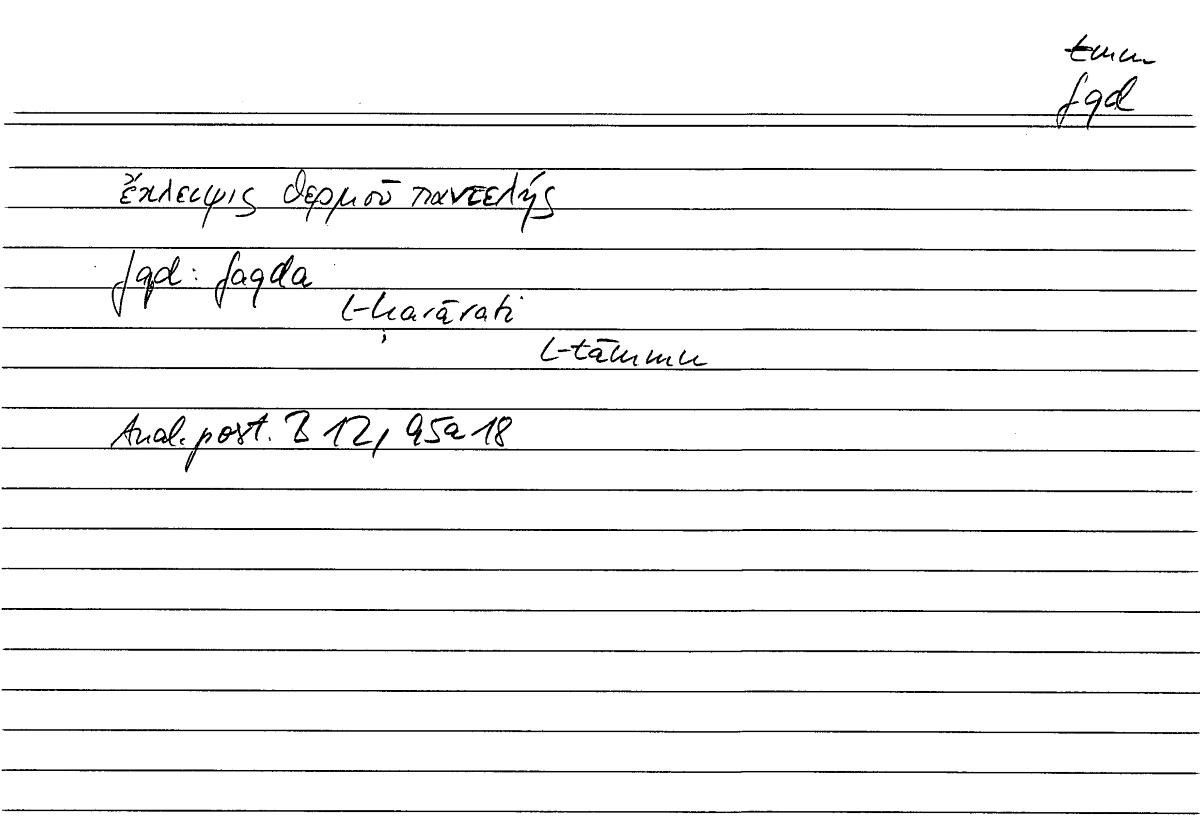 tmm
fqd
ἔκλειψις θερμοῦ παντελής
fqd: faqda
l-ḥarārati
l-tāmmu
Anal. post. B 12, 95a18